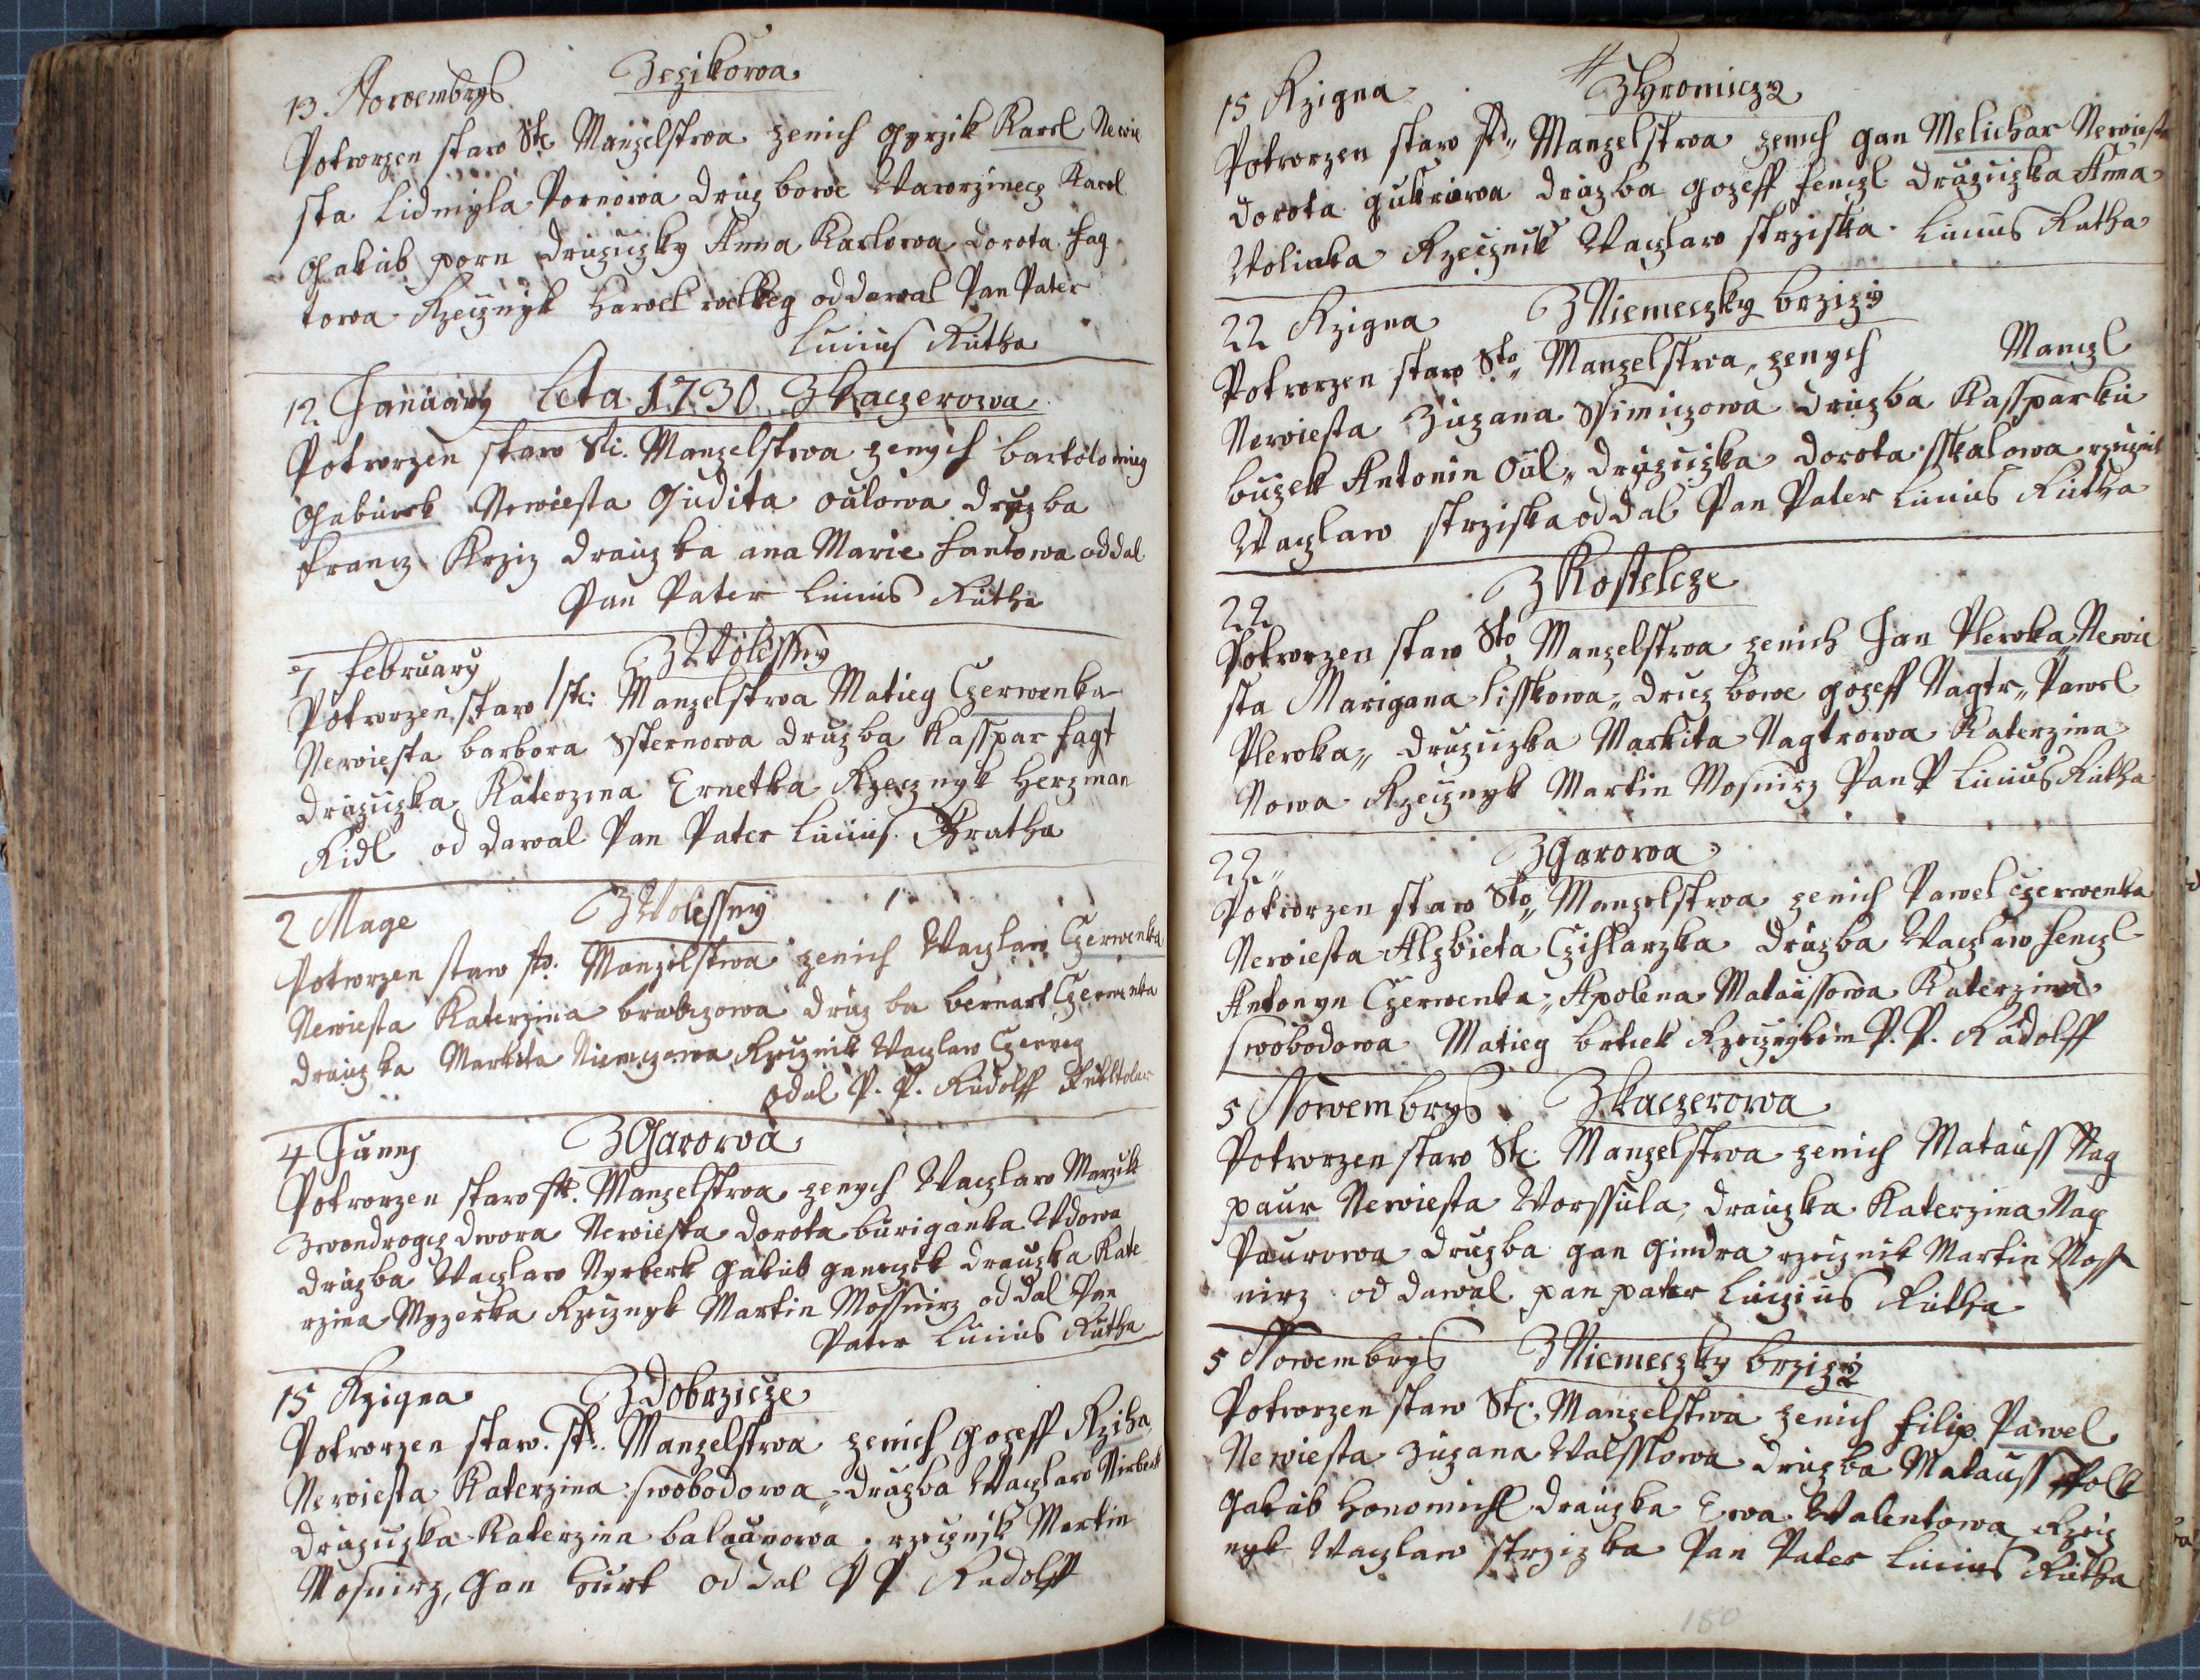 13 Nowembrys Zezikowa
Potworzen staw Ste Manzelstwa zenich Gyrzik Karel Newie
sta Lidmyla Pornowa Druzbowe Wawrzinecz Karel
Gakub porn Druzuzky Anna Karlowa Dorota fag
towa Rzecznyk Hawel oddawal Pan Pater
Lucius Rutha
12 January Leta 1730 Zkaczerowa
Potworzen staw Ste. Manzelstwa zenych bartolomieg
Gaburek Newiesta Gudita oulowa druzba
francz Krziz drauzka ana Marie fantowa oddal
Pan Pater Lucius Rutha
7 february ZWolessny
Potworzen staw ste: Manzelstwa Matieg Czerwenka
Newiesta barbora Ssternowa druzba Kasspar fagt
druzuzka Katerzina Ernetka Rzecznyk Herzman
Ridl od dawal Pan Pater Lucius Rutha
2 Mage ZWolessny
Potworzen staw sto. Manzelstwa zenich Waczlaw Czerwenka
Newiesta Katerzina brabczowa druzba bernart Czerwenka
drauzka Markita Niemczowa Rzecznik Waczlaw Czerweg
odal P. P. Rudolff
4 Juny ZGawowa
Potworzen staw ste. Manzelstwa zenych Waczlaw
Newiesta Dorota buriganka Wdowa
druzba Waczlaw Nyrberk Gakub ganeczek drauzka Kate
rzina Myzerka Rzecznyk Martin Mossnirz oddal Pan
Pater Lucius Rutha
15 Rzigna Zdobrzicze
Potworzen staw. st. Manzelstwa zenich Gozeff Rziha
Newiesta Katerzina swobodowa druzba Waczlaw Nirberk
druzuzka Katerzina balounowa. rzecznik Martin
Mosnirz, Gan burk oddal P P Rudolff
15 Rzigna ZHromicz
Potworzen staw st Manzelstwa zenich gan Melichar Newiesta
Dorota druzba gozeff fenczl druzuzka Anna
Wolinka Rzecznik Waczlaw strziska. Lucius Rutha
22 Rzigna ZNiemeczky brzizy
Potworzen staw Sto Manzelstwa, zenych Manczl
Newiesta Zuzana Ssimiczowa Druzba Kassparku
buzek Antonin Oul, druzuzka Dorota sskalowa rzecznik
Waczlaw strziska oddal Pan Pater Lucius Rutha
22 ZKostelcze
Potworzen staw Sto Manzelstwa zenich Jan Plewka Newie
sta Marigana lisskowa druzbowe gozeff Nagtr Pawel
Plewka druzuzka Markita Nagtrowa Katerzina
Nowa Rzecznyk Martin Mosnirz Pan P Lucius Rutha
22 ZGawowa
Potworzen staw Sto Manzelstwa zenich Pawel Czerwenka
Newiesta Alzbieta Czihlarzka druzba Waczlaw fenczl
Antonyn Czerwenka Apolena Mataussowa Katerzina
swobodowa Matieg brtiek Rzecznykem P. P. Rudolff
5 Nowembrys Zkaczerowa
Potworzen staw Ste Manzelstwa zenich Matauss Nag
paur Newiesta Worssula, drauzka Katerzina Nag
Paurowa druzba gan Gindra rzecznik Martin Moss
nirz od dawal pan pater Luczius Rutha
5 Nowembrys ZNiemeczky brzizy
Potworzen staw Ste: Manzelstwa zenich filip Pawel
Newiesta Zuzana Walsslowa druzba Matauss Wolk
Gakub Honomichl drauzka Ewa Walentowa Rzecz
nyk Waczlaw strzizka Pan Pater Lucius Rutha
180